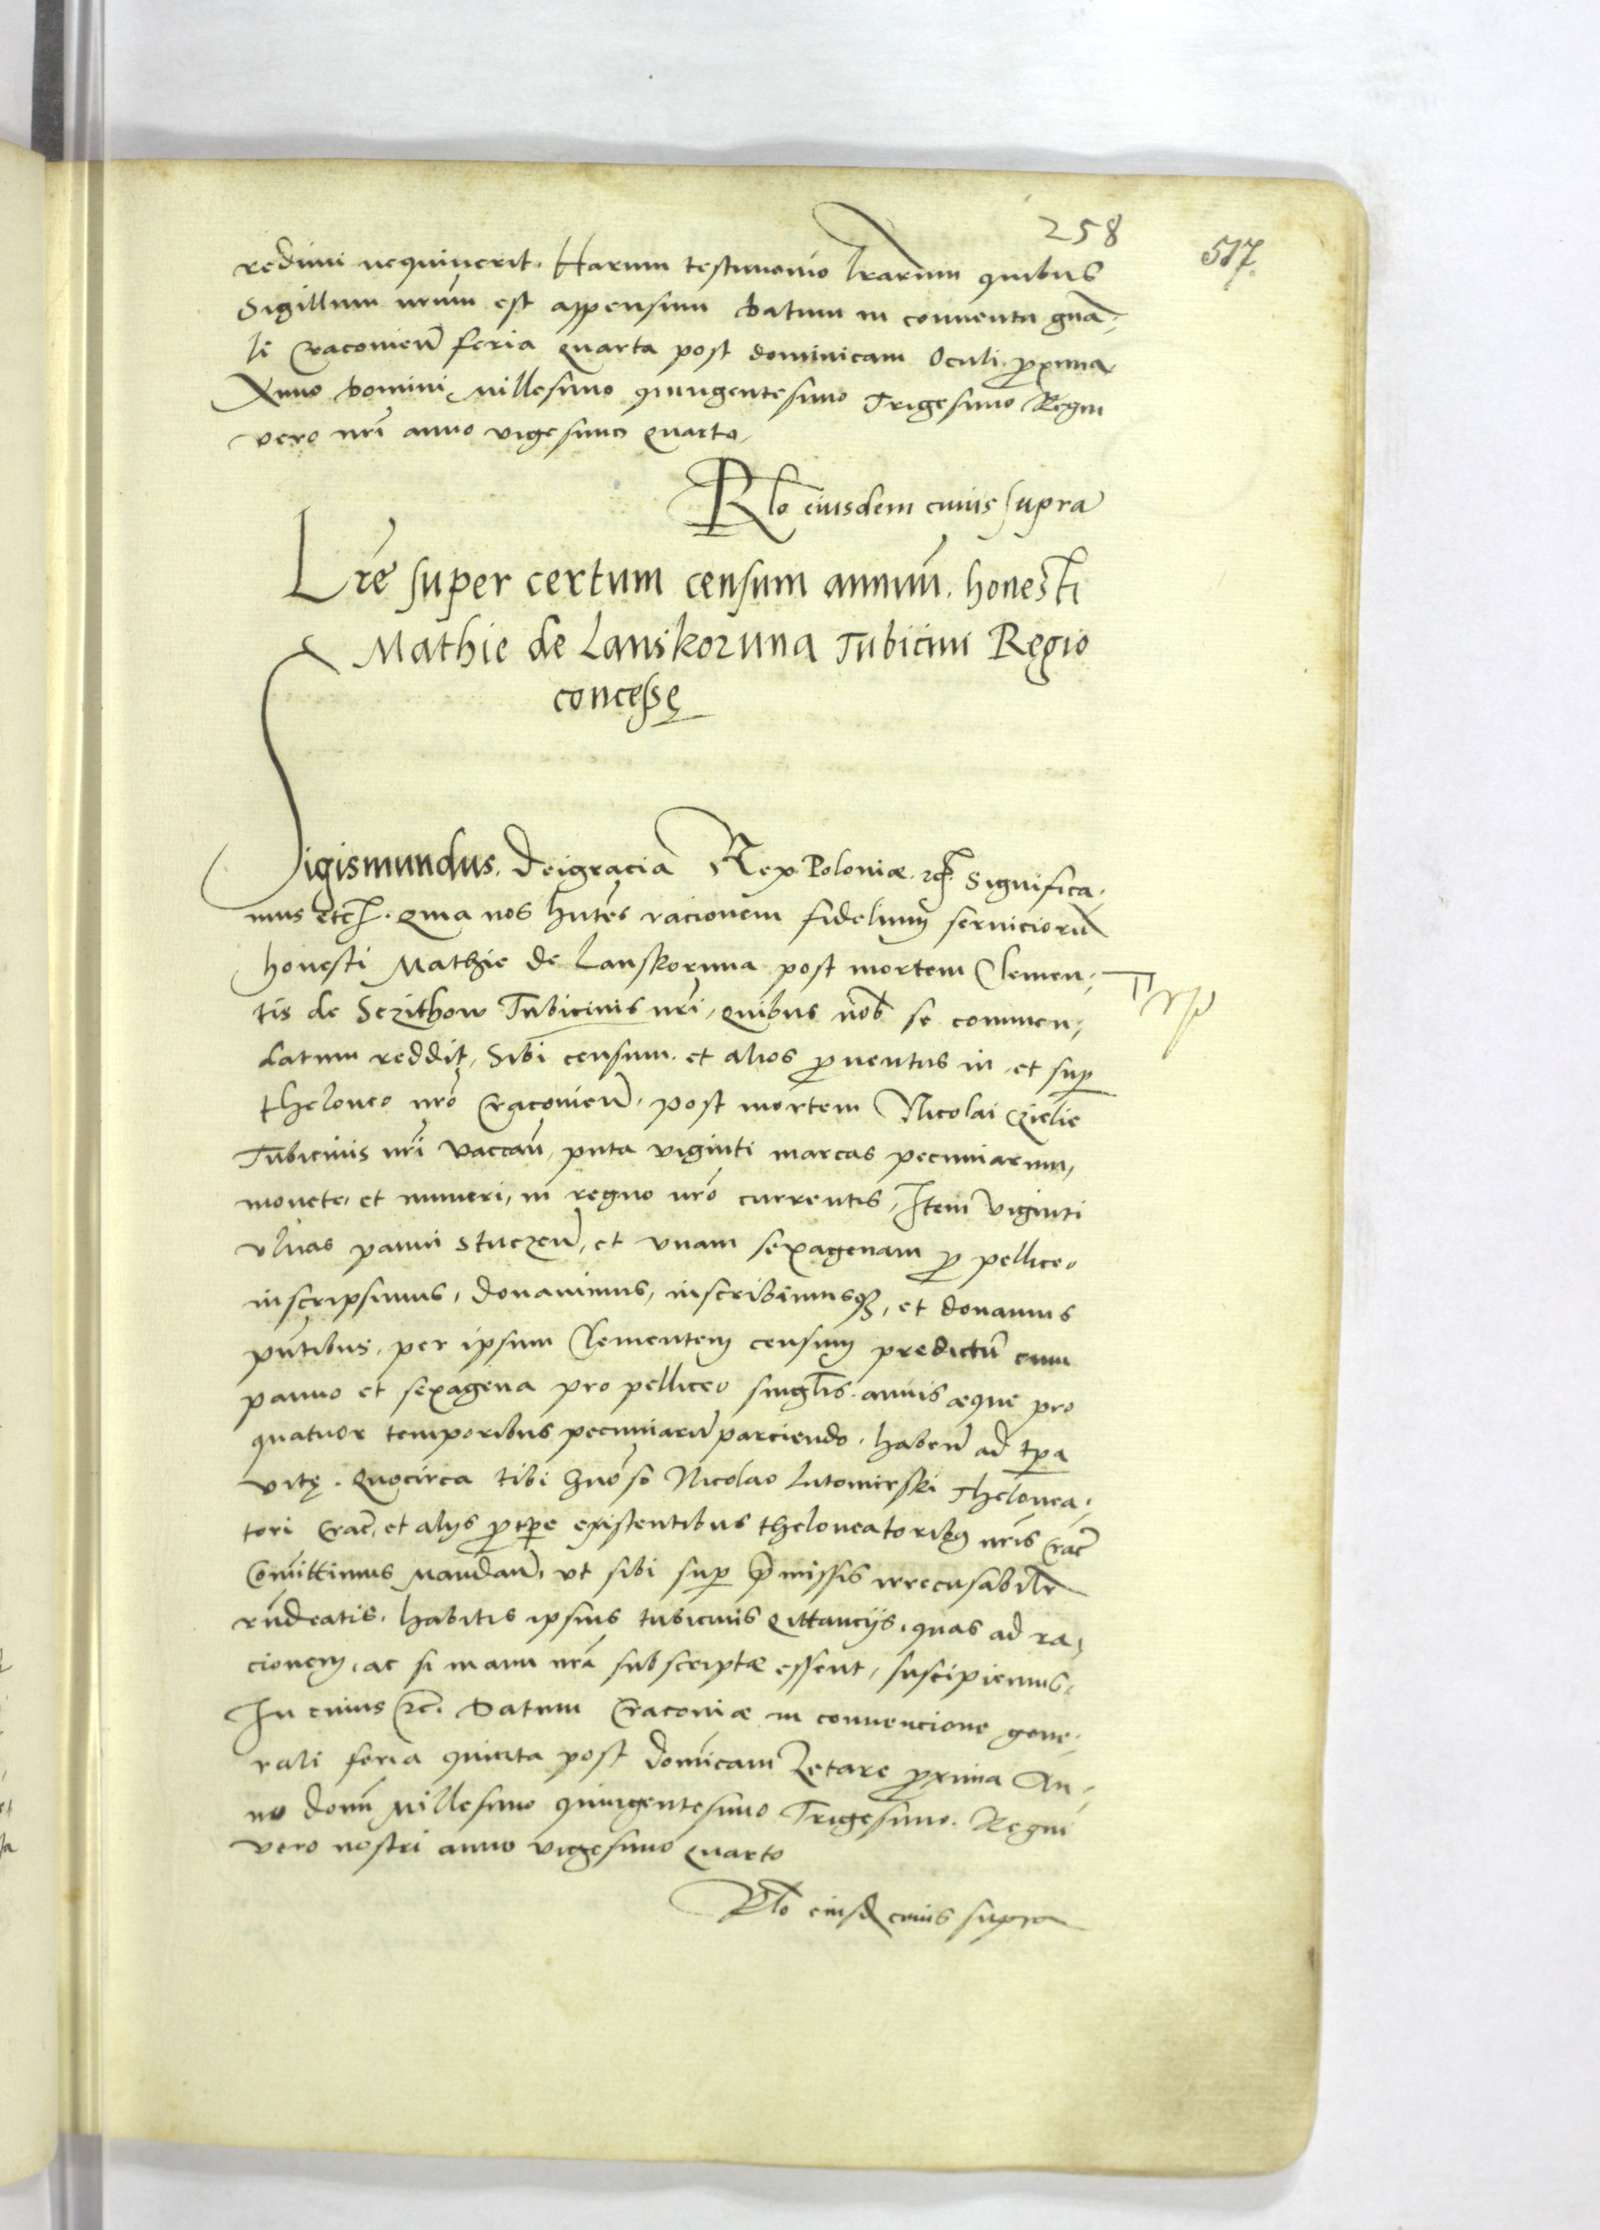 258
517.
redimi nequiverit. Harum testimonio lrarum quibus
Sigillum nrum est appensum Datum in conventu gna-
li Cracovien feria quarta post dominicam Oculi proxima
Anno Domini Millesimo quingentesimo Trigesimo Regni
vero nri anno vigesimo quarto
Rlo eiusdem cuius supra
Lre super certum censum annuu. honesti
Mathie de Lanskoruna Tubicini Regio
concessę
Sigismundus. Dei gracia Rex Poloniæ. Significa-
mus etc. Quia nos hntes racionem fidelium serviciorum
honesti Mathie de Lanskoruna post mortem Clemen-
tis de Sczithow Tubicinis nri, quibus nob se commen-
datum reddit, Sibi censum et alios proventus in et sup
theloneo nro Cracovien. post mortem Nicolai Czielie
Tubicinis nri vaccan, puta viginti marcas pecuniarum,
monete, et numeri, in regno nro currentis, Item viginti
ulnas panni Stuczen, et unam sexagenam pro pelliceo
inscripsimus, donavimus, inscribimusq, et donamus
pntibus. per ipsum Clementem censum predictu cum
panno et sexagena pro pelliceo singlis annis æque pro
quatuor temporibus pecuniaru parciendo. haben ad tpa
vitę. Quocirca tibi Gnoso Nicolao Lutomirski Thelonea-
tori Crac, et aliis protpe existentibus theloneatoribus nris Crac
Comittimus Mandan, ut sibi sup pmissis irrecusabilr
rndeatis. habitis ipsius tubicinis Qittanciis, quas ad ra-
cionem, ac si manu nra subscriptæ essent, suscipiemus.
In cuius rc. Datum Cracoviæ in convencione gene-
rali feria quinta post Domicam Letare proxima An-
no Domi Millesimo quingentesimo Trigesimo. Regni
vero nostri anno vigesimo quarto
Rlo eiusd cuius supra